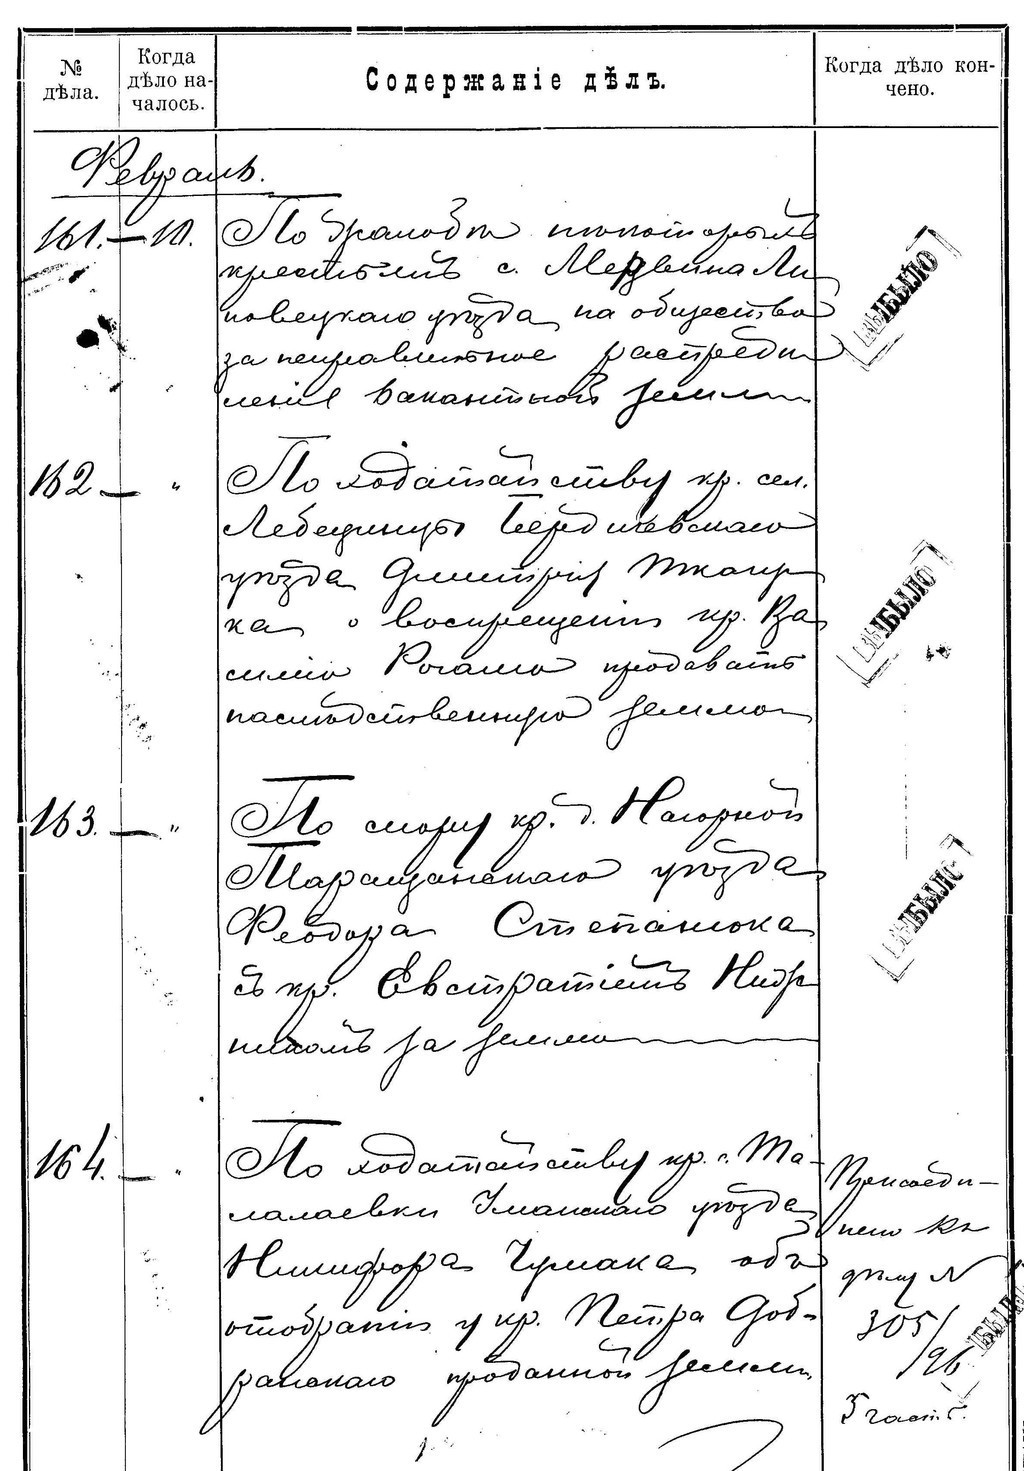 №
дѣла.
Когда
дѣло на-
чалось.
Содержаніе дѣлъ.
Когда дѣло кон-
чено.
Февраль.
161. — 10.
По жалобѣ некоторыхъ
крестьянъ с. Медвина Ли
повецкаго уѣзда на общество
за неправильное распредѣ
леніе вакантной земли
ВЫБЫЛО
162 — "
По ходатайству кр. сел.
Лебединцы Бердичевскаго
уѣзда Димитрія Ткачу
ка о воспрещеніи кр. Ва
силію продавать
наслѣдственную землю
ВЫБЫЛО
163. — "
По спору кр. д. Нагорной
Таращанскаго уѣзда
Феодора Степанюка
съ кр. Евстратіемъ
за землю
ВЫБЫЛО
164. — "
По ходатайству кр. с. Та-
лалаевки Уманскаго уѣзда
Никифора Чумака объ
отобраніи у кр. Петра Доб-
ранскаго проданной земли
Присоеди-
нено къ
дѣлу №
305/
/96
5 част.
ВЫБЫЛО